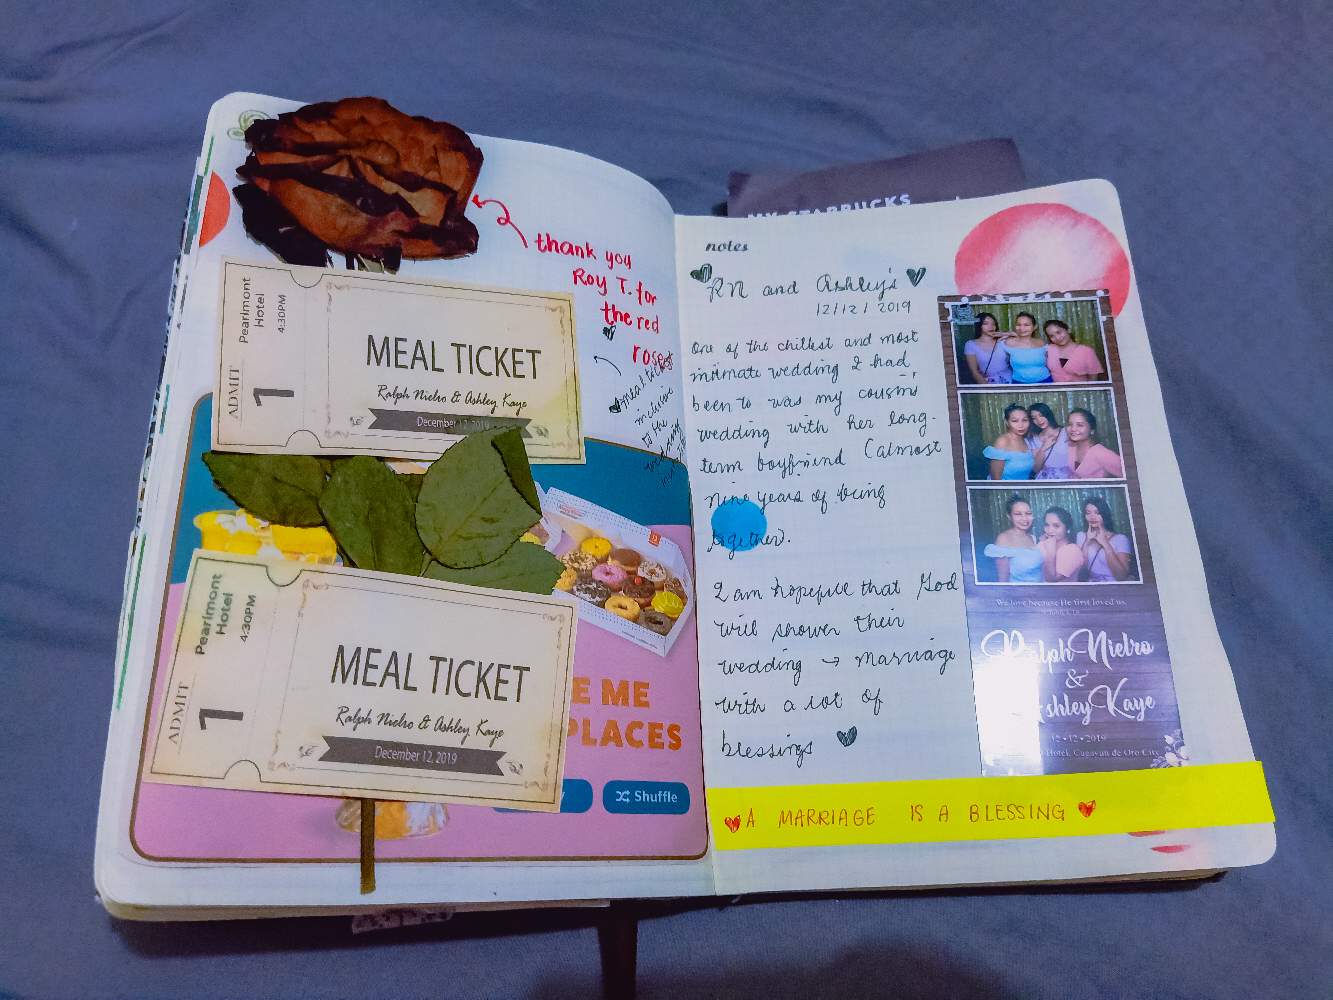 thank you
Roy T. for
the red
rose
Pearlmont
Hotel
4:30PM
ADMIT
1
MEAL TICKET
Ralph Nielro & Ashley Kaye
December 12, 2019
meal ticket
inclusive
the
wedding
Pearlmont
Hotel
4:30PM
ADMIT
1
MEAL TICKET
Ralph Nielro & Ashley Kaye
December 12, 2019
E ME
PLACES
Shuffle
MY STARBUCKS
notes
RN and Ashley's
12/12/2019
One of the chillest and most
intimate wedding I had
been to was my cousin's
wedding with her long-
term boyfriend (almost
nine years of being
together).
I am hopeful that God
will shower their
wedding → marriage
with a lot of
blessings
We love because He first loved us.
Ralph Nielro
&
Ashley Kaye
12•12•2019
Hotel, Cagayan de Oro City
A MARRIAGE IS A BLESSING